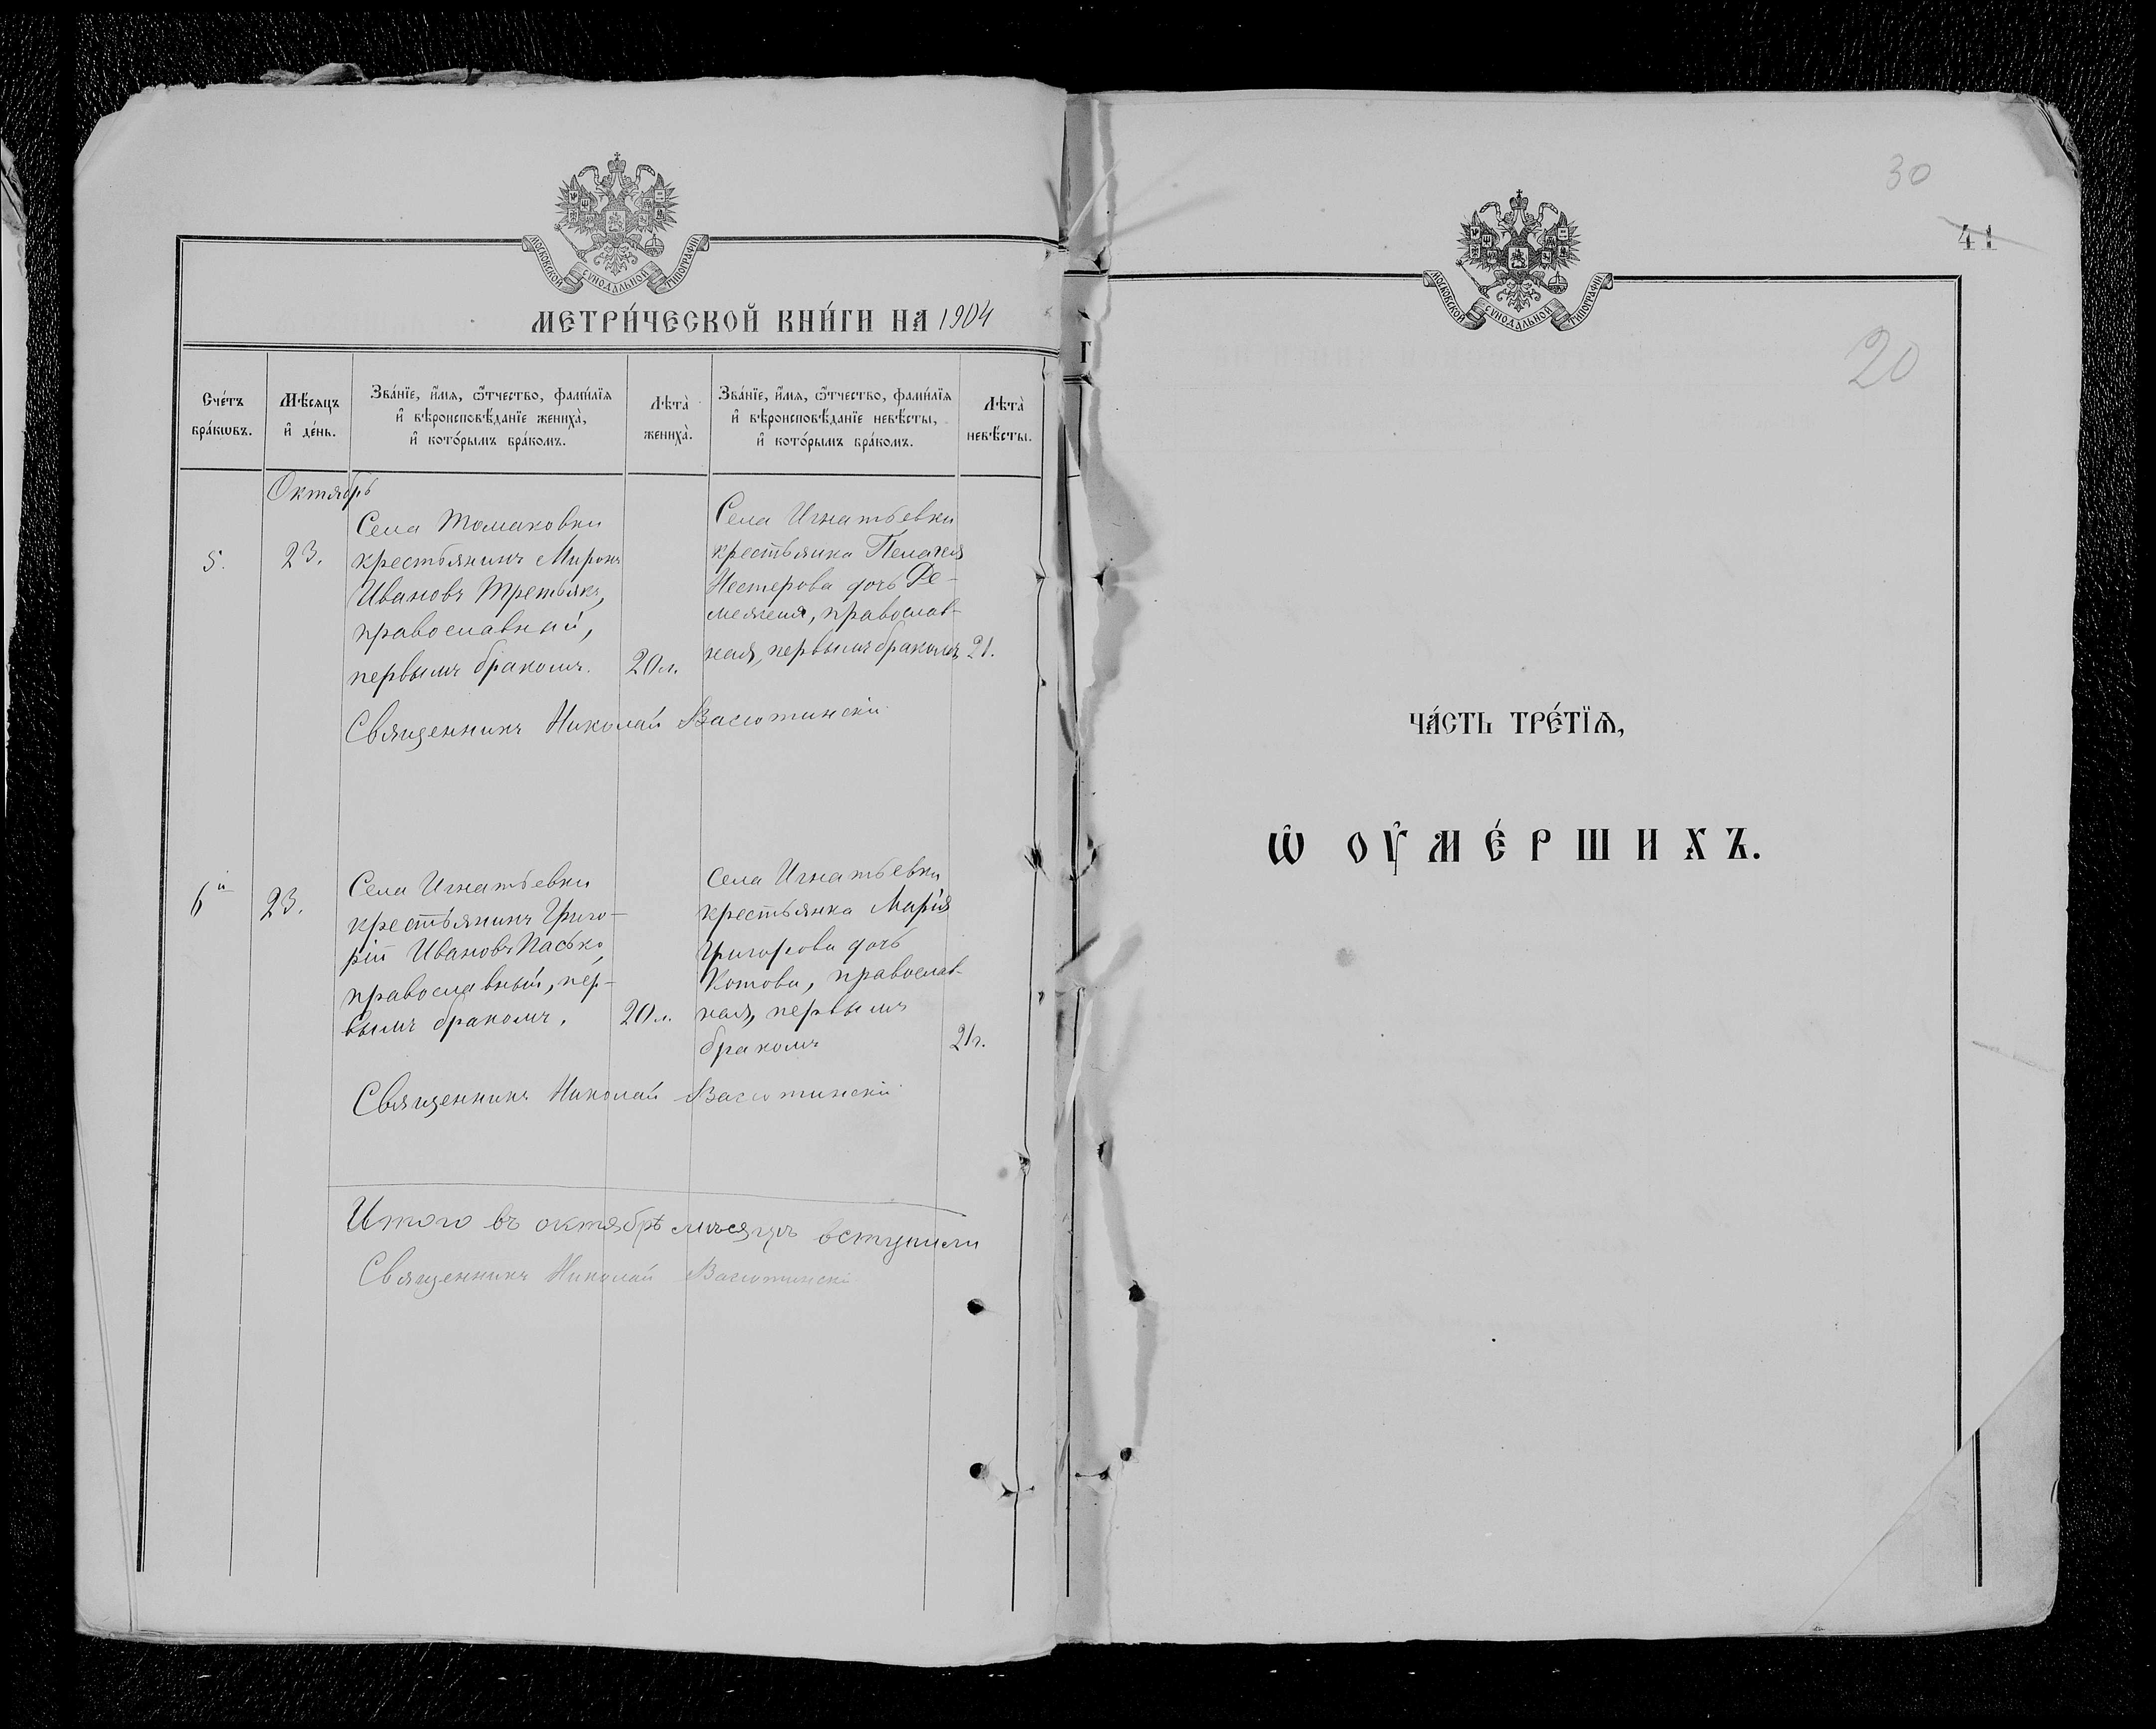 МОСКОВСКОЙ СѴНОДАЛЬНОЙ ТИПОГРАФІИ
МЕТРИ́ЧЕСКОЙ КНИ́ГИ НА 1904
Сче́тъ бра́кѡвъ.
Мѣсяцъ и҆ де́нь.
Зва́нїе, и҆́мѧ, ѻ҆́тчество, фами́лїѧ
и҆ вѣроисповѣ́данїе жениха̀,
и҆ кото́рымъ бра́комъ.
Лѣта̀ жениха̀.
Зва́нїе, и҆́мѧ, ѻ҆́тчество, фами́лїѧ
и҆ вѣроисповѣ́данїе невѣ́сты,
и҆ кото́рымъ бра́комъ.
Лѣта̀ невѣ́сты.
Октябрь
5.
23.
Села Томаковки
крестьянинъ Миронъ
Ивановъ Третьякъ,
православный,
первымъ бракомъ.
20 л.
Села Игнатьевки
крестьянка Пелагея
Нестерова дочь
православ-
ная, первымъ бракомъ
21.
Священникъ Николай Васютинскій
6й
23.
Села Игнатьевки
крестьянинъ Григо-
рій Ивановъ Пасько,
православный, пер-
вымъ бракомъ.
20 л.
Села Игнатьевки
крестьянка Марія
Григорова дочь
Котова, православ-
ная, первымъ
бракомъ
21 г.
Священникъ Николай Васютинскій
Итого въ октябрѣ мѣсяцѣ вступили
Священникъ Николай Васютинскій
30
41
МОСКОВСКОЙ СѴНОДАЛЬНОЙ ТИПОГРАФІИ
20
Г
ЧА́СТЬ ТРЕ́ТЇѦ,
Ѡ҆ ОУ҆МЕ́РШИХЪ.